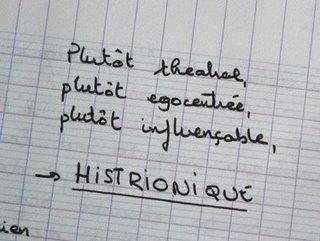 Plutôt theatral,
plutôt egocentrée,
plutôt influençable,
→ HISTRIONIQUE
ien